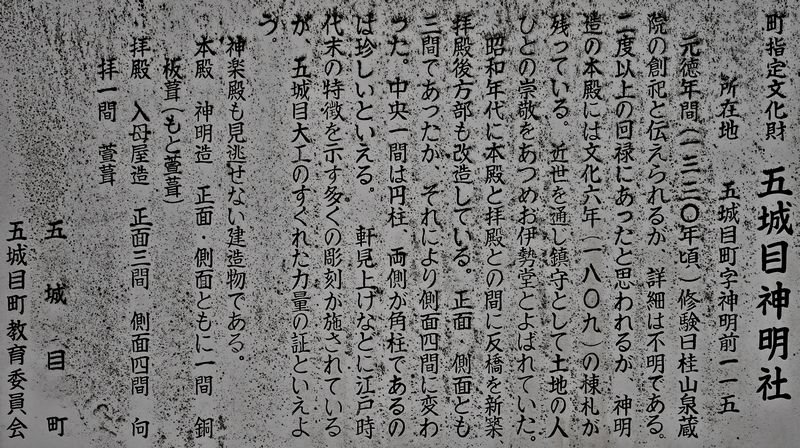 町指定文化財 五城目神明社
所在地 五城目町字神明前一一五
元徳年間(一三三〇年頃)修験日桂山泉蔵
院の創祀と伝えられるが 詳細は不明である。
二度以上の回禄にあったと思われるが 神明
造の本殿には文化六年(一八〇九)の棟札が
残っている。近世を通し鎮守として土地の人
ひとの崇敬をあつめお伊勢堂とよばれていた。
昭和年代に本殿と拝殿との間に反橋を新築
拝殿後方部も改造している。正面 側面とも
三間であったが、それにより側面四間に変わ
った。中央一間は円柱 両側が角柱であるの
は珍しいといえる。 軒見上げなどに江戸時
代末の特徴を示す多くの彫刻が施されている
が、五城目大工のすぐれた力量の証といえよ
う。
神楽殿も見逃せない建造物である。
本殿 神明造 正面・側面ともに一間 銅
板葺(もと萱葺)
拝殿 入母屋造 正面三間 側面四間 向
拝一間 萱葺
五城目町
五城目町教育委員会